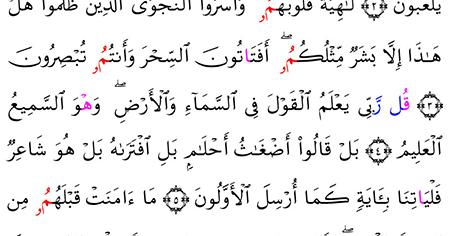 يَلْعَبُونَ ﴿٢﴾ لَاهِيَةً قُلُوبُهُمُۥ وَأَسَرُّوا۟ ٱلنَّجْوَى ٱلَّذِينَ ظَلَمُوا۟ هَلْ
هَٰذَا إِلَّا بَشَرٌ مِّثْلُكُمُۥ ۖ أَفَتَاتُونَ ٱلسِّحْرَ وَأَنتُمُۥ تُبْصِرُونَ
﴿٣﴾ قُل رَّبِّى يَعْلَمُ ٱلْقَوْلَ فِى ٱلسَّمَآءِ وَٱلْأَرْضِ ۖ وَهْوَ ٱلسَّمِيعُ
ٱلْعَلِيمُ ﴿٤﴾ بَلْ قَالُوٓا۟ أَضْغَٰثُ أَحْلَٰمٍ بَلِ ٱفْتَرَىٰهُ بَلْ هُوَ شَاعِرٌ
فَلْيَاتِنَا بِـَٔايَةٍ كَمَآ أُرْسِلَ ٱلْأَوَّلُونَ ﴿٥﴾ مَآ ءَامَنَتْ قَبْلَهُمُۥ مِن